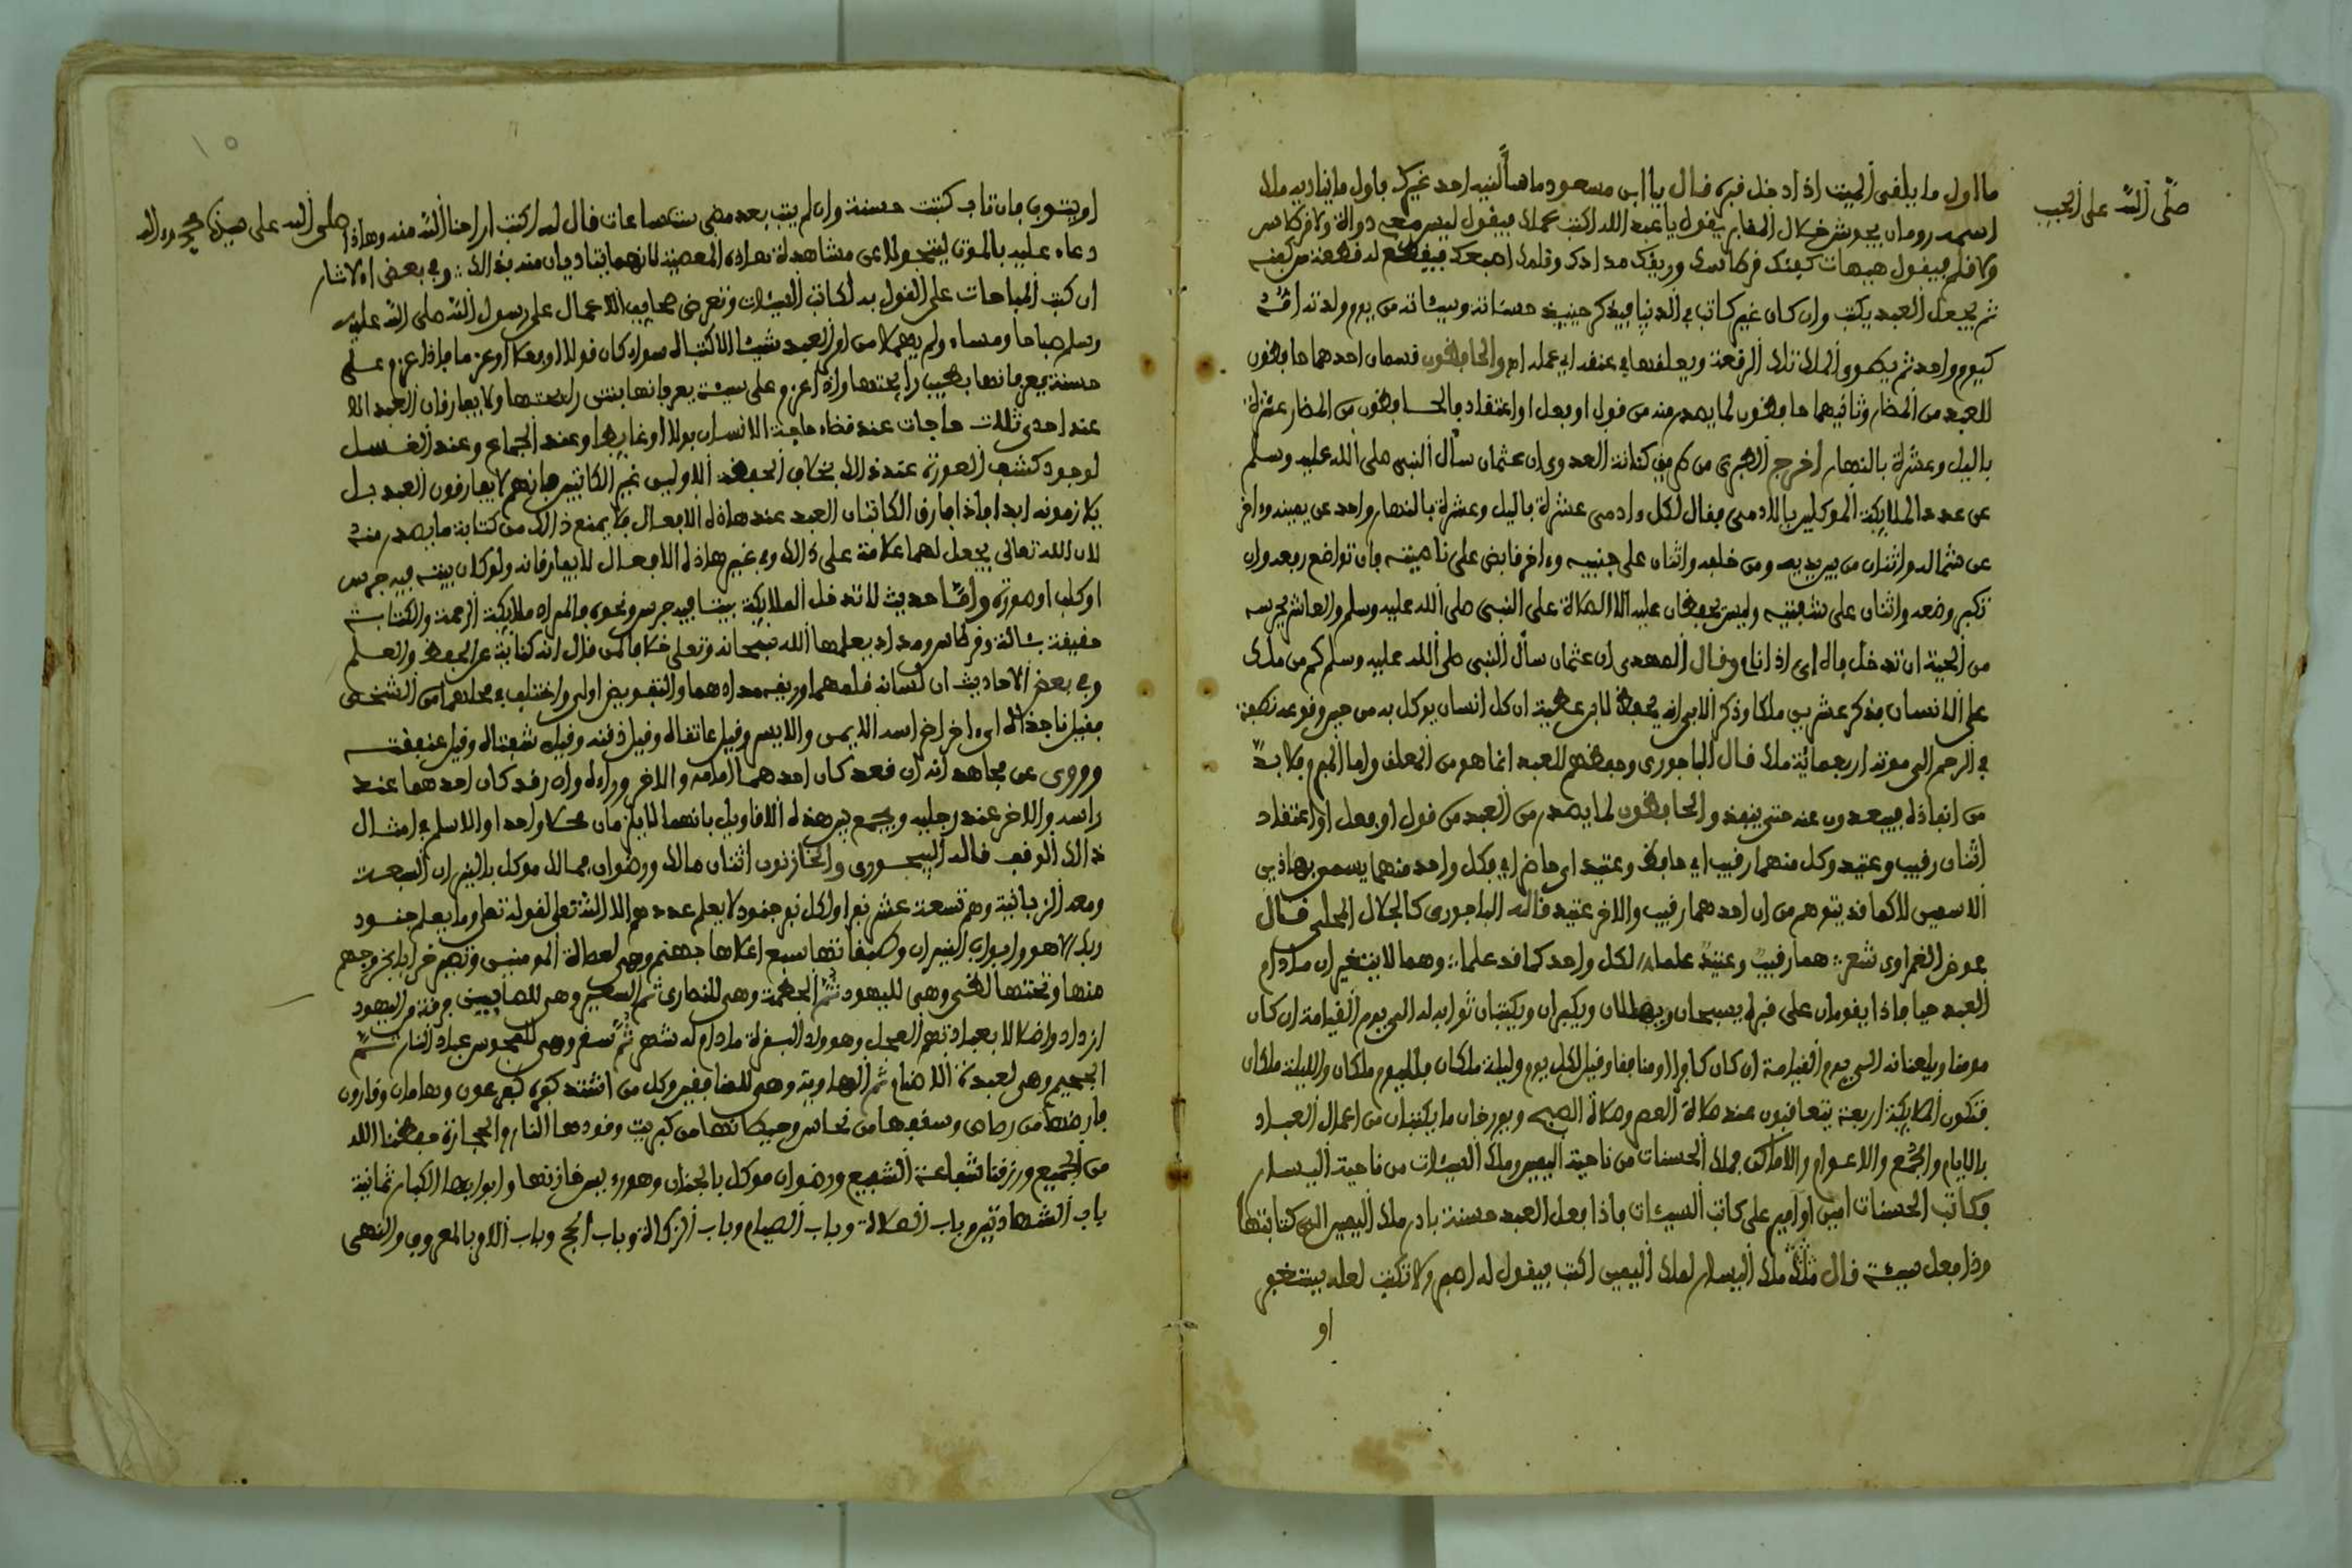 صلى الله على الحبيب
ما اول ما يلقى الميت اذا دخل قبره قال يا ابن مسعود ما سألنيه احد غيرك فاول ما يناديه ملك
اسمه رومان يجوس خلال المقابر يقول يا عبد الله اكتب عملك فيقول ليس معي دواة ولا قرطاس
ولا قلم فيقول هيهات كفنك قرطاسك وريقك مدادك وقلمك اصبعك فيقطع له قطعة من كفنه
ثم يجعل العبد يكتب وان كان غير كاتب في الدنيا فيذكر حينئذ حسناته وسيئاته من يوم ولدته امه
كيوم واحد ثم يطوي الملك تلك الرقعة ويعلقها في عنقه اي عمله اه والحافظون قسمان احدهما حافظون
للعبد من المضار وثانيهما حافظون لما يصدر منه من قول او فعل او اعتقاد فالحافظون من المضار عشرة
باليل وعشرة بالنهار اخرج الطبري من طريق كنانة العدوي ان عثمان سأل النبي صلى الله عليه وسلم
عن عدد الملايكة الموكلين بالادمي فقال لكل وادمي عشرة باليل وعشرة بالنهار واحد عن يمينه وءاخر
عن شماله واثنان من بين يديه ومن خلفه واثنان على جنبيه وءاخر قابض على ناصيته فان تواضع رفعه وان
تكبر وضعه واثنان على شفتيه وليس يحفظان عليه الا الصلاة على النبي صلى الله عليه وسلم والعاشر يحرسه
من الحية ان تدخل فاه اي اذا نام وقال المهدى ان عثمان سأل النبي صلى الله عليه وسلم كم من ملك
على الانسان فذكر عشرين ملكا وذكر الابي انه يحفظ لابن عطية ان كل انسان يوكل به من حين وقوعه نطفة
في الرحم الى موته اربعمائة ملك قال الباجوري وحفظهم للعبد انما هو من المعلق واما المبرم فلا بد
من انفاذه فيبعدون عنه حتى ينفذ والحافظون لما يصدر من العبد من قول او فعل او اعتقاد
اثنان رقيب وعتيد وكل منهما رقيب اي حافظ وعتيد اي حاضر اي فكل واحد منهما يسمى بهاذين
الاسمين لا كما قد يتوهم من ان احدهما رقيب والاخر عتيد قاله الباجوري كالجلال المحلي قال
عوض الغمراوى شعر هما رقيب وعتيد علما لكل واحد كما قد علما وهما لا يتغيران ما دام
العبد حيا فاذا يقومان على قبره يسبحان ويهللان ويكبران ويكتبان ثوابه له الى يوم القيامة ان كان
مومنا ويلعنانه الى يوم القيامة ان كان كافرا او منافقا وقيل لكل يوم وليلة ملكان فلليوم ملكان والليلة ملكان
فتكون الملايكة اربعة يتعاقبون عند صلاة العصر وصلاة الصبح ويورخان ما يكتبان من اعمال العباد
بالايام والجمع والاعوام والاماكن فملك الحسنات من ناحية اليمين وملك السيئات من ناحية اليسار
فكاتب الحسنات امين او امير على كاتب السيئات فاذا فعل العبد حسنة بادر ملك اليمين الى كتابتها
وذا فعل سيئة قال ملك اليسار لملك اليمين اكتب فيقول له اصبر ولا تكتب لعله يستغفر
او
او يتوب فان تاب كتبت حسنة وان لم يتب بعد مضي ست ساعات قال له اكتب اراحنا الله منه وهاذا
صلى الله على
دعاء عليه بالموت لينجو الاعن مشاهدة هاذه المعصية لانهما يتاذيان منه بذالك وفي بعض الاثار
ان كتب المباحات على القول به لكاتب السيئات وتعرض صحايف الاعمال على رسول الله صلى الله عليه
وسلم صباحا ومساء ولم يهملا من امر العبد شيئا الا كتباه سواء كان قولا او فعلا او عزما فاذا عزم على
حسنة يعرفانها بطيب رايحتها واذا عزم على سيئة يعرفانها بنتن رايحتها ولا يفارقان العبد الا
عند احدى ثلاث حاجات عند قضاء حاجة الانسان بولا او غايطا وعند الجماع وعند الغسل
لوجود كشف العورة عند ذالك بخلاف الحفظة الاوليين غير الكاتبين فانهم لا يفارقون العبد بل
يلازمونه ابدا فاذا فارق الكاتبان العبد عند هاذه الافعال فلا يمنع ذالك من كتابة ما يصدر منه
لان الله تعالى يجعل لهما علامة على ذالك وفي غير هاذه الافعال لا يفارقانه ولو كان بيته فيه جرس
او كلب او صورة واما حديث لا تدخل الملايكة بيتا فيه جرس ونحوه فالمراد ملايكة الرحمة والكتابة
حقيقة بئالة وقرطاس ومداد يعلمها الله سبحانه وتعلى خلافا لمن قال انه كناية عن الحفظ والعلم
وفي بعض الاحاديث ان لسانه قلمهما وريقه مدادهما والتفويض اولى واختلف في محلهما من الشخص
فقيل ناجذاه اي ءاخر اضراسه الايمن والايسر وقيل عاتقاه وقيل ذقنه وقيل شفتاه وقيل عنفقته
وروي عن مجاهد انه ان قعد كان احدهما امامه والاخر وراءه وان رقد كان احدهما عند
راسه والاخر عند رجليه ويجمع بين هذه الاقاويل بانهما لا يلزمان محلا واحدا والاسلم في امثال
ذالك الوقف قاله البيجوري والخازنون اثنان مالك ورضوان فمالك موكل بالنيران السبعة
ومعه الزبانية وهم تسعة عشر نفرا ولكل نفر جنود لا يعلم عددهم الا الله تعلى لقوله تعلى وما يعلم جنود
ربك الا هو وابواب النيران وطبقاتها سبع اعلاها جهنم وهي لعصاة المومنين وتصير خرابا بخروجهم
منها وتحتها لظى وهي لليهود ثم الحطمة وهي للنصارى ثم السعير وهي للصابيين فرقة من اليهود
ازدادوا ضلالا بعبادتهم العجل وهو ولد البقرة ما دام له شهر ثم سقر وهي للمجوس عباد النار ثم
الجحيم وهي لعبدة الاصنام ثم الهاوية وهي للمنافقين وكل من اشتد كفره كفرعون وهامان وقارون
فارضها من رصاص وسقفها من نحاس وحيطانها من كبريت وقودها النار والحجارة حفظنا الله
من الجميع ورزقنا شفاعة الشفيع ورضوان موكل بالجنان وهو رءيس خازنها وابوابها الكبار ثمانية
باب الشهادتين وباب الصلاة وباب الصيام وباب الزكاة وباب الحج وباب الامر بالمعروف والنهى
١٥